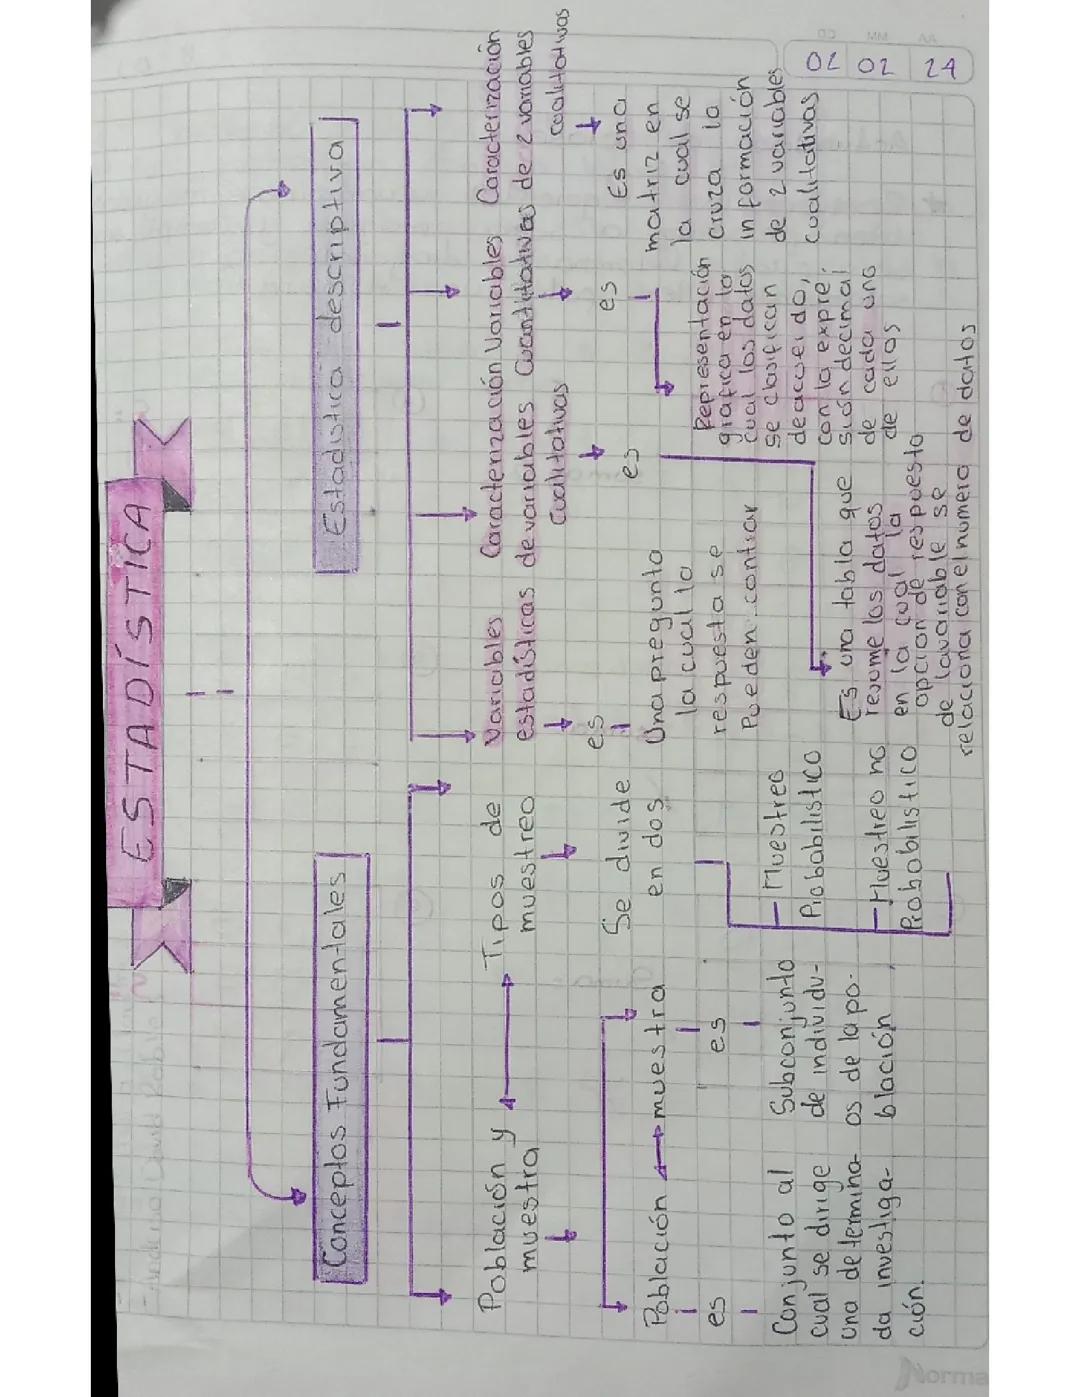 DD MM AA
02 02 24
ESTADÍSTICA
Conceptos Fundamentales
Estadística descriptiva
Población y
muestra
Tipos de
muestreo
Variables
estadísticas
Caracterización
de variables
Cualitativas
Variables
Cuantitativas
Caracterización
de 2 variables
cualitativas
Población
muestra
es
Conjunto al
cual se dirige
una determina-
da investiga-
ción.
es
Subconjunto
de individu-
os de la po-
blación
Se divide
en dos
- Muestreo
Probabilistico
- Muestreo no
Probabilistico
es
Una pregunta
la cual la
respuesta se
Pueden contiar
es
Es una tabla que
resume los datos
en la cual la
opcion de respuesta
de la variable se
relaciona con el numero de datos
es
Representación
grafica en la
cual los datos
se clasifican
deacuerdo,
con la expre-
sión decimal
de cada uno
de ellos
Es una
matriz en
la cual se
cruza la
información
de 2 variables
cualitativas
Norma